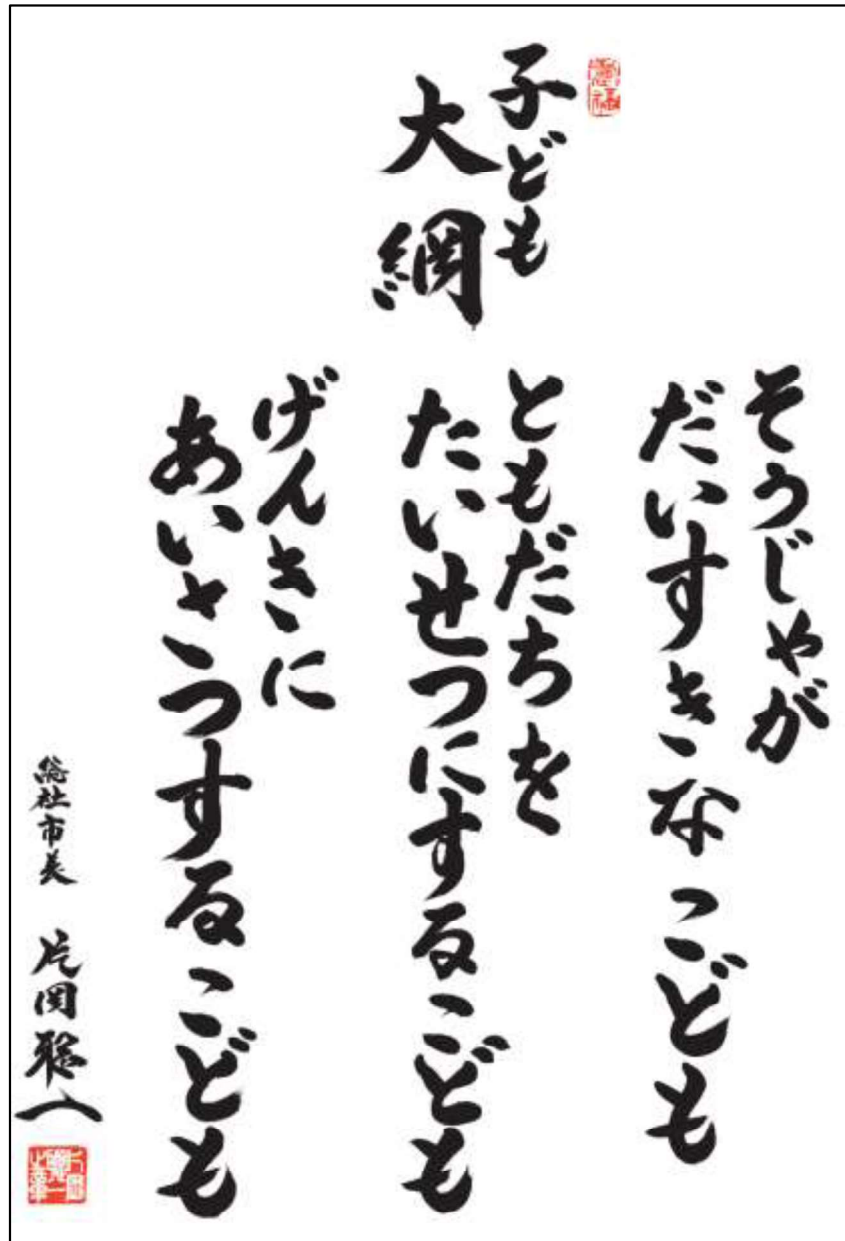 子ども
大綱
そうじゃが
だいすきなこども
ともだちを
たいせつにするこども
げんきに
あいさつするこども
総社市長 片岡聡一